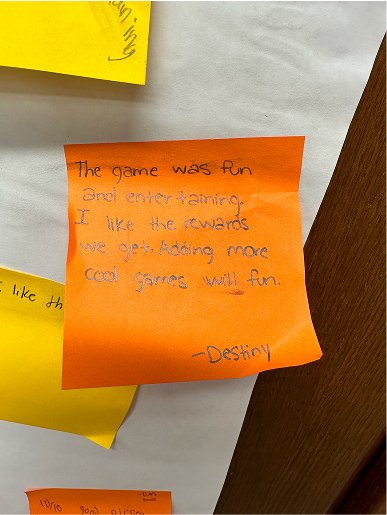 The game was fun
and entertaining.
I like the rewards
we get. Adding more
cool games will fun.
-Destiny
like th
10/10 good